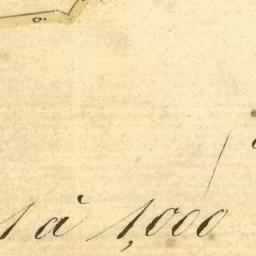 1 à 1,000